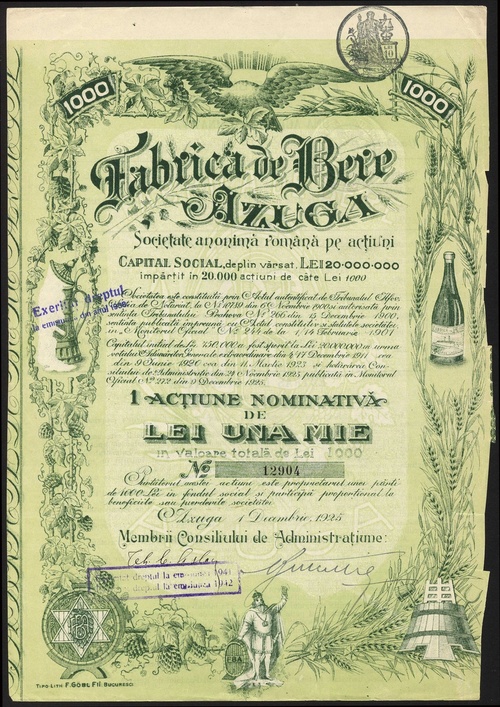 1000 1000
Fabrica de Bere
AZUGA
Societate anonimă română pe acțiuni
CAPITAL SOCIAL, deplin vărsat, LEI 20.000.000
împărțit în 20.000 acțiuni de câte Lei 1000
Exerc dreptul
la
Societatea este constituită prin Actul autentificat de Tribunalul Ilfov,
Secția de Notariat, la No
sentința Tribunalului Prahova No 266 din 15 Decembrie 1900,
sentința publicată împreună cu Actul constitutiv și statutele societății
în „Monitorul Oficial" No
Capitalul inițial de Lei 750.000, a fost sporit la Lei 20.000.000 în urma
votului Adunărilor Generale extraordinare din 4/17 Decembrie 1911, cea
din 9 Iunie 1920, cea din 11 Martie 1923 și hotărârea Con-
siliului de Administrație din 24 Noembrie 1925 publicată în Monitorul
Oficial No 272 din 9 Decembrie 1925.
1 ACȚIUNE NOMINATIVĂ
DE
LEI UNA MIE
în valoare totală de Lei 1000
No 12904
Purtătorul acestei acțiuni este proprietarul unei părți
de 1000 Lei în fondul social și participă proporțional la
beneficiile sau pierderile societății
Azuga 1 Decembrie, 1925
Membrii Consiliului de Administrație:
dreptul la emisiunea 1941
dreptul la emisiunea 1942
FBA
TIPO-LITH. F. GÖBL FII. BUCURESCI